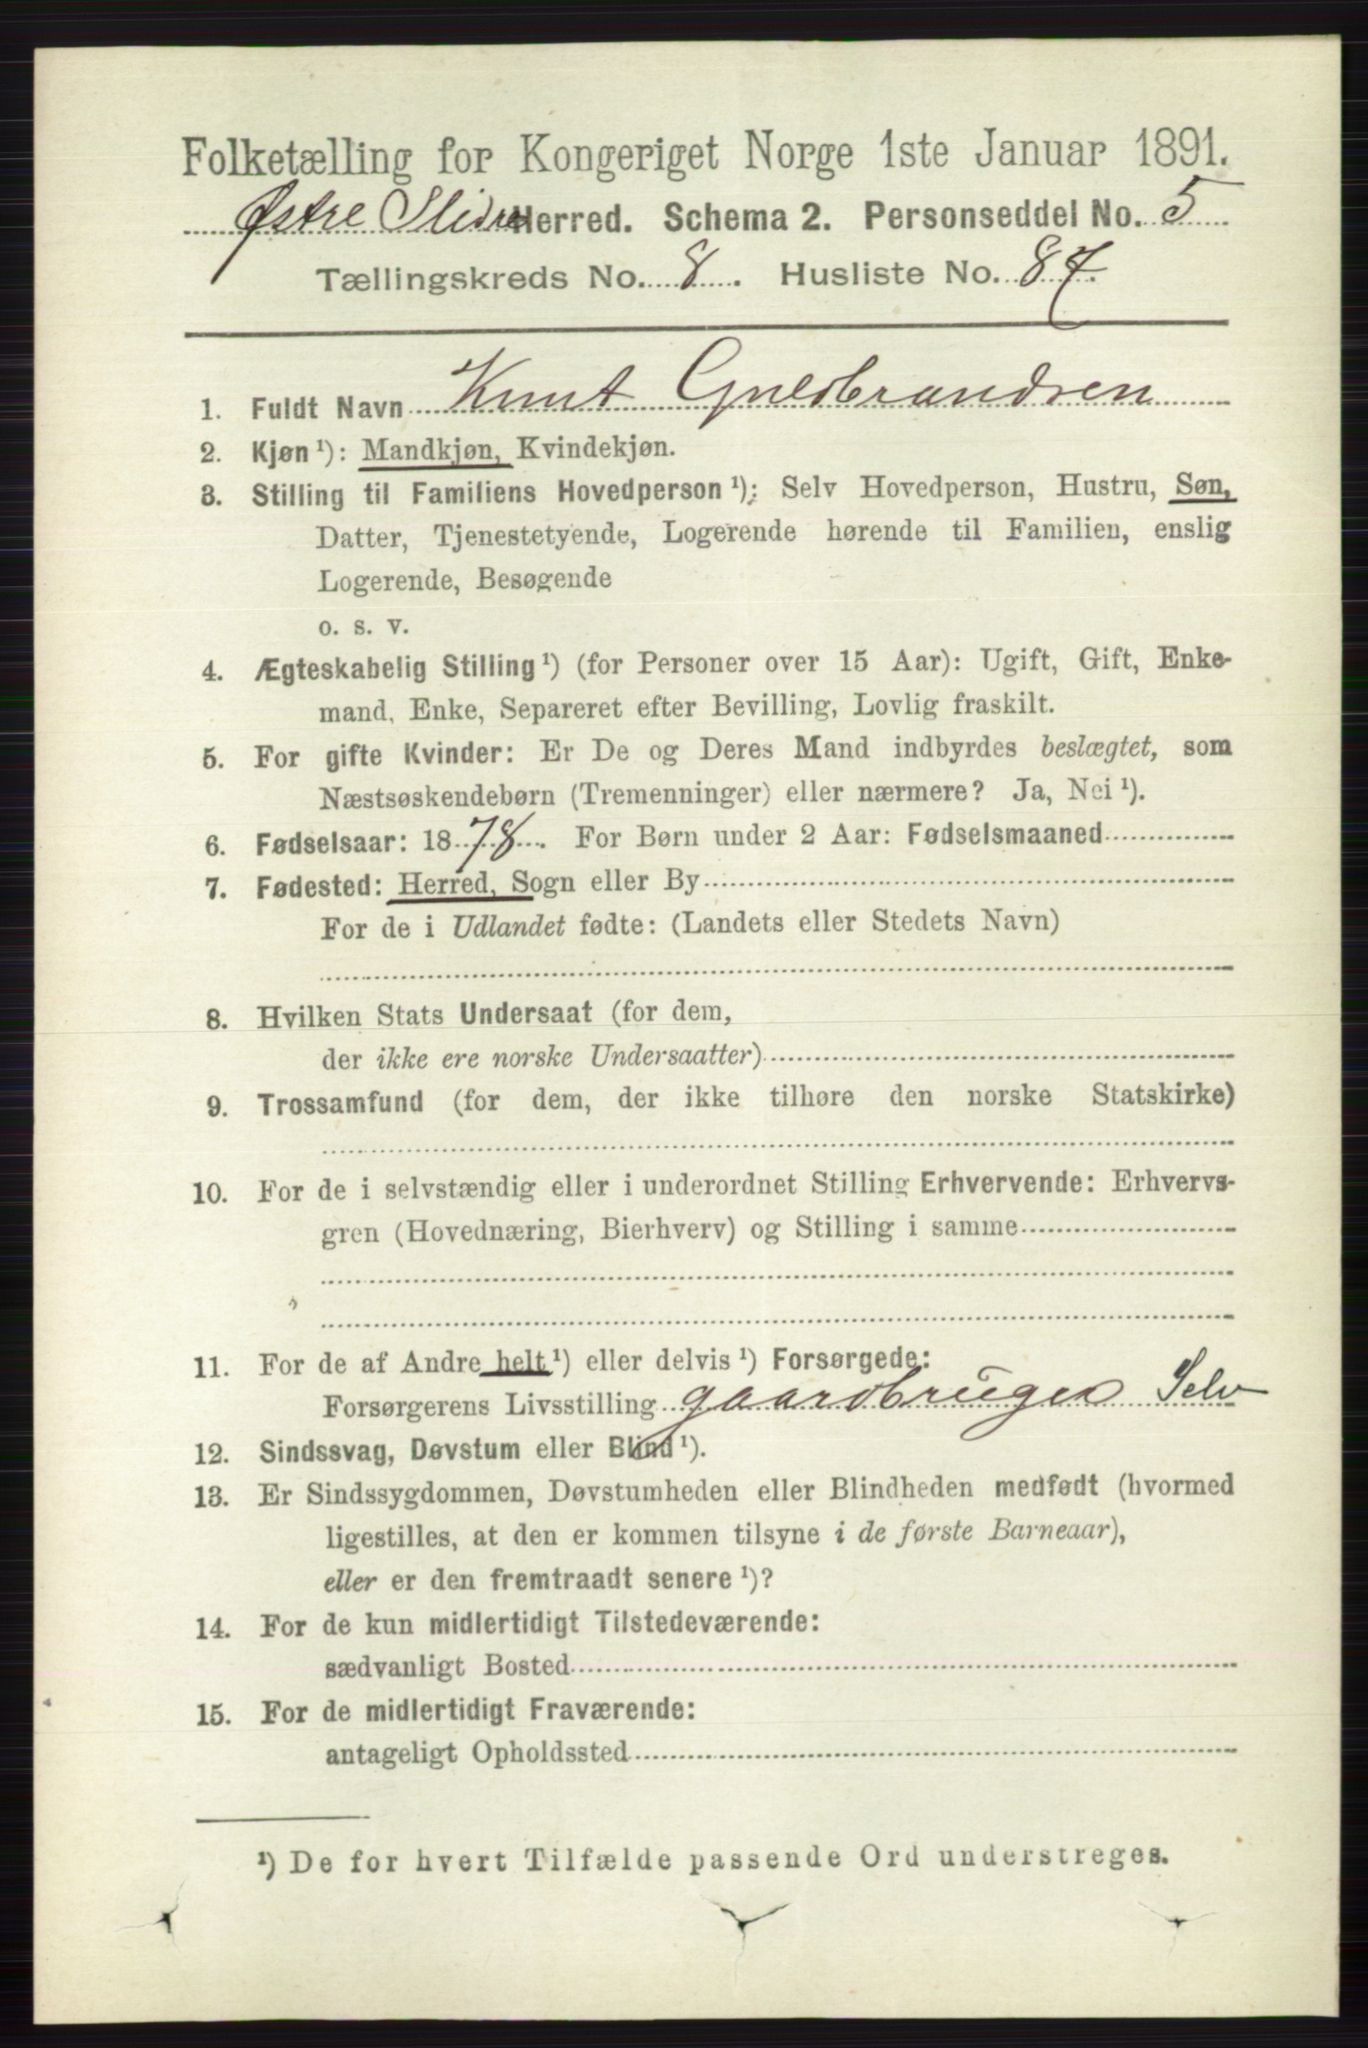 Folketælling for Kongeriget Norge 1ste Januar 1891.
Østre Slidre Herred. Schema 2. Personseddel No. 5
Tællingskreds No. 8. Husliste No. 87.
1. Fuldt Navn Knut Guldbrandsen
2. Kjøn ¹): Mandkjøn, Kvindekjøn.
3. Stilling til Familiens Hovedperson ¹): Selv Hovedperson, Hustru, Søn,
Datter, Tjenestetyende, Logerende hørende til Familien, enslig
Logerende, Besøgende
o. s. v.
4. Ægteskabelig Stilling ¹) (for Personer over 15 Aar): Ugift, Gift, Enke-
mand, Enke, Separeret efter Bevilling, Lovlig fraskilt.
5. For gifte Kvinder: Er De og Deres Mand indbyrdes beslægtet, som
Næstsøskendebørn (Tremenninger) eller nærmere? Ja, Nei ¹).
6. Fødselsaar: 1878. For Børn under 2 Aar: Fødselsmaaned
7. Fødested: Herred, Sogn eller By
For de i Udlandet fødte: (Landets eller Stedets Navn)
8. Hvilken Stats Undersaat (for dem,
der ikke ere norske Undersaatter)
9. Trossamfund (for dem, der ikke tilhøre den norske Statskirke)
10. For de i selvstændig eller i underordnet Stilling Erhvervende: Erhvervs-
gren (Hovednæring, Bierhverv) og Stilling i samme
11. For de af Andre helt ¹) eller delvis ¹) Forsørgede:
Forsørgerens Livsstilling gaardbruger Selv
12. Sindssvag, Døvstum eller Blind ¹).
13. Er Sindssygdommen, Døvstumheden eller Blindheden medfødt (hvormed
ligestilles, at den er kommen tilsyne i de første Barneaar),
eller er den fremtraadt senere ¹)?
14. For de kun midlertidigt Tilstedeværende:
sædvanligt Bosted
15. For de midlertidigt Fraværende:
antageligt Opholdssted
¹) De for hvert Tilfælde passende Ord understreges.